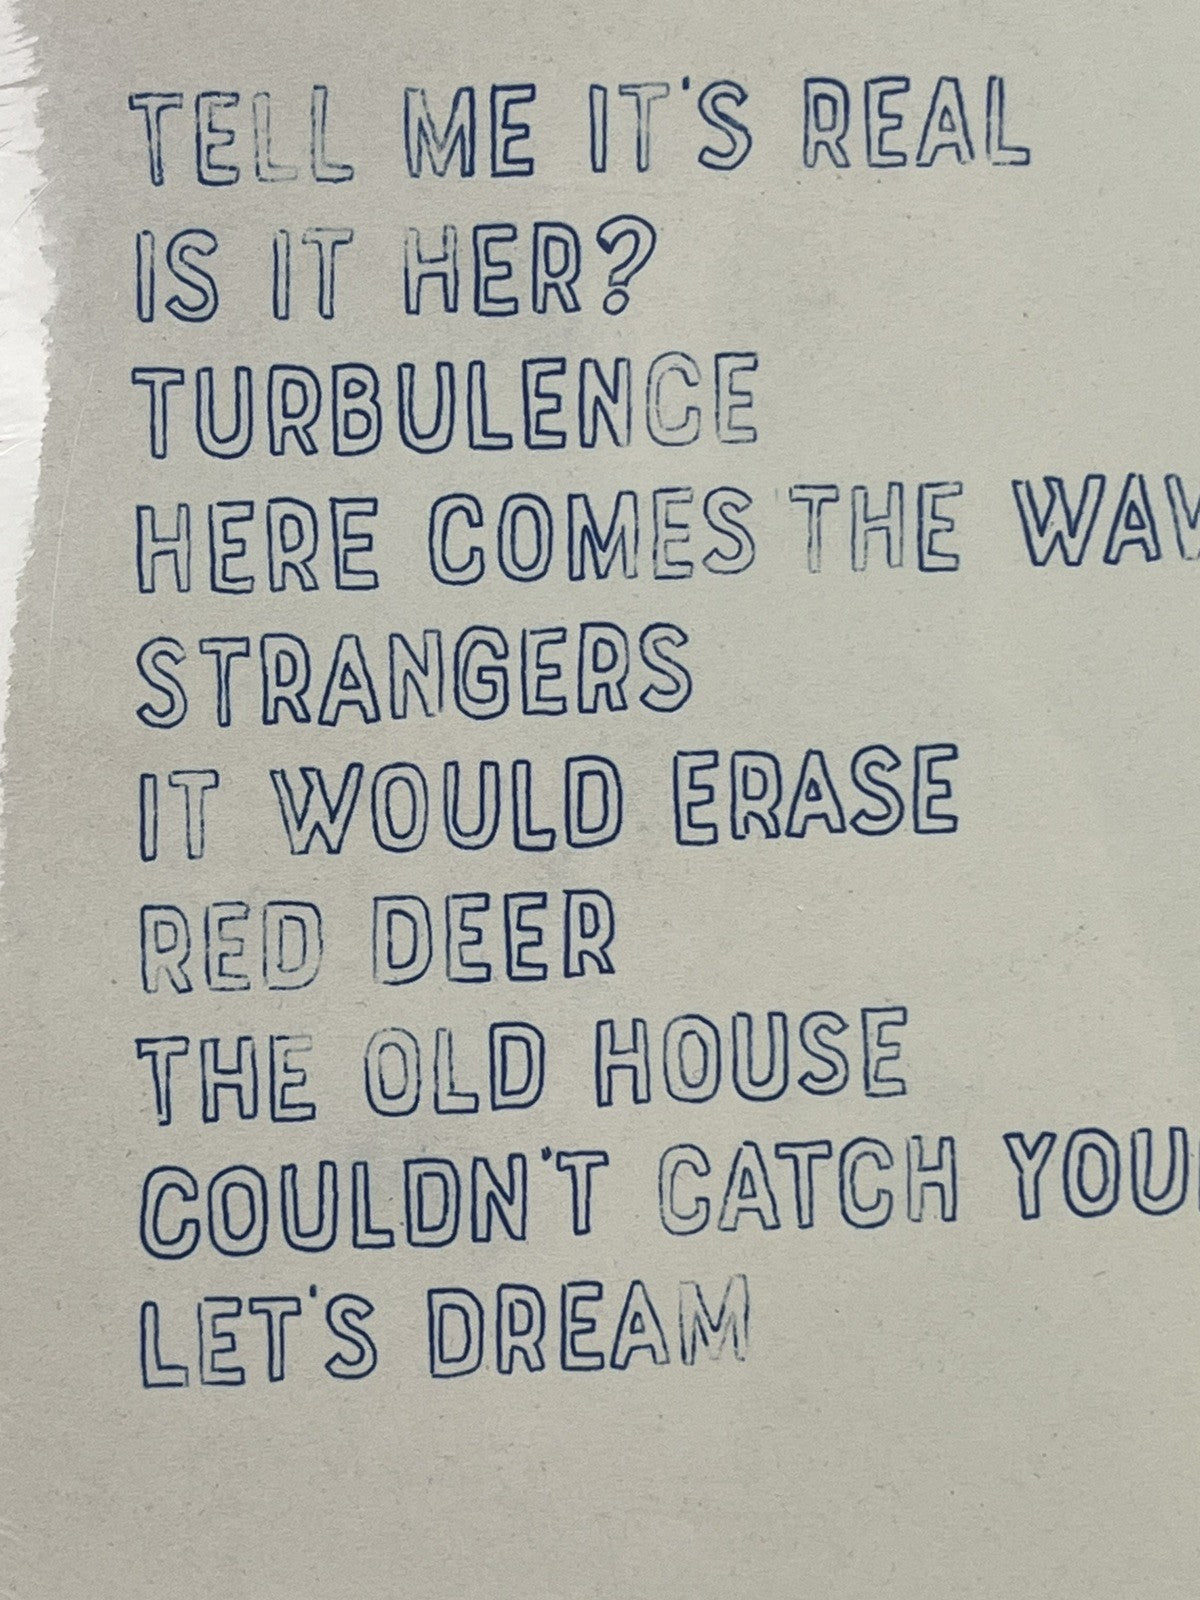 TELL ME IT'S REAL
IS IT HER?
TURBULENCE
HERE COMES THE
STRANGERS
IT WOULD ERASE
RED DEER
THE OLD HOUSE
COULDN'T CATCH YOU
LET'S DREAM